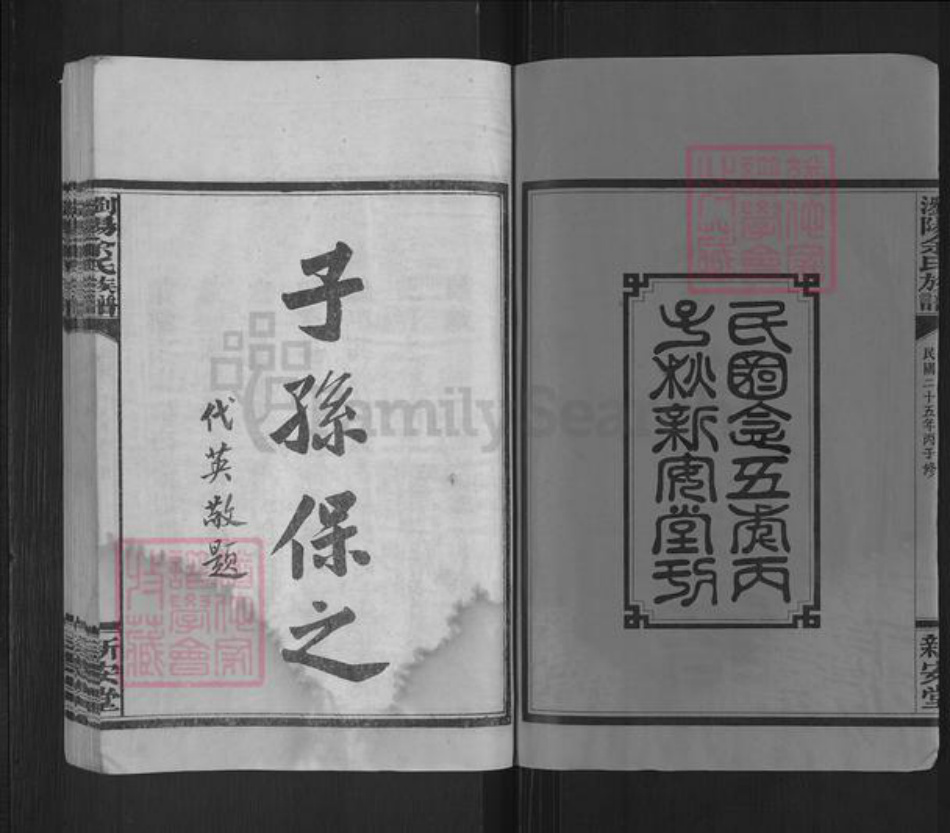 民國念五年丙
子秋新安堂刊
瀏陽余氏族譜
民國二十五年丙子修
新安堂
子孫保之
代英敬題
瀏陽余氏族譜
新安堂
FamilySearch